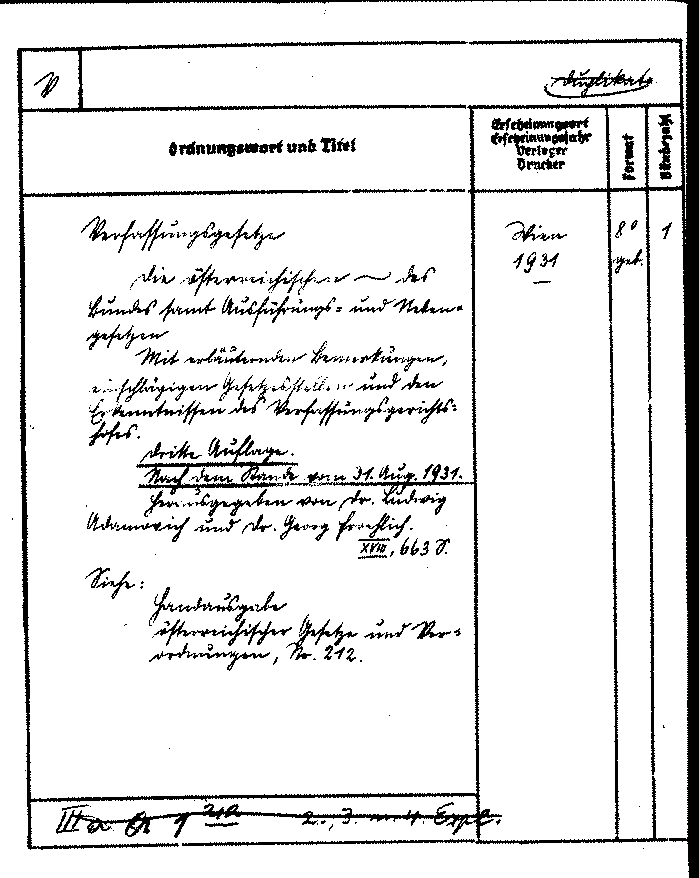 V
Duplikate
Ordnungswort und Titel
Erscheinungsort
Erscheinungsjahr
Verleger
Drucker
Format
Bändezahl
Verfassungsgesetze
Wien
8°
1
1931
geb.
Die österreichischen — des
Bundes samt Ausführungs- und Neben-
gesetzen
Mit erläuternden Bemerkungen,
einschlägigen Gesetzesstellen und den
Erkenntnissen des Verfassungsgerichts-
hofes.
Dritte Auflage.
Nach dem Stande vom 31. Aug. 1931.
Herausgegeben von Dr. Ludwig
Adamovich und Dr. Georg Froehlich.
XVIII, 663 S.
Siehe:
Handausgabe
österreichischer Gesetze und Ver-
ordnungen, Nr. 212.
III a 1 212 2., 3. u. 4. Expl.